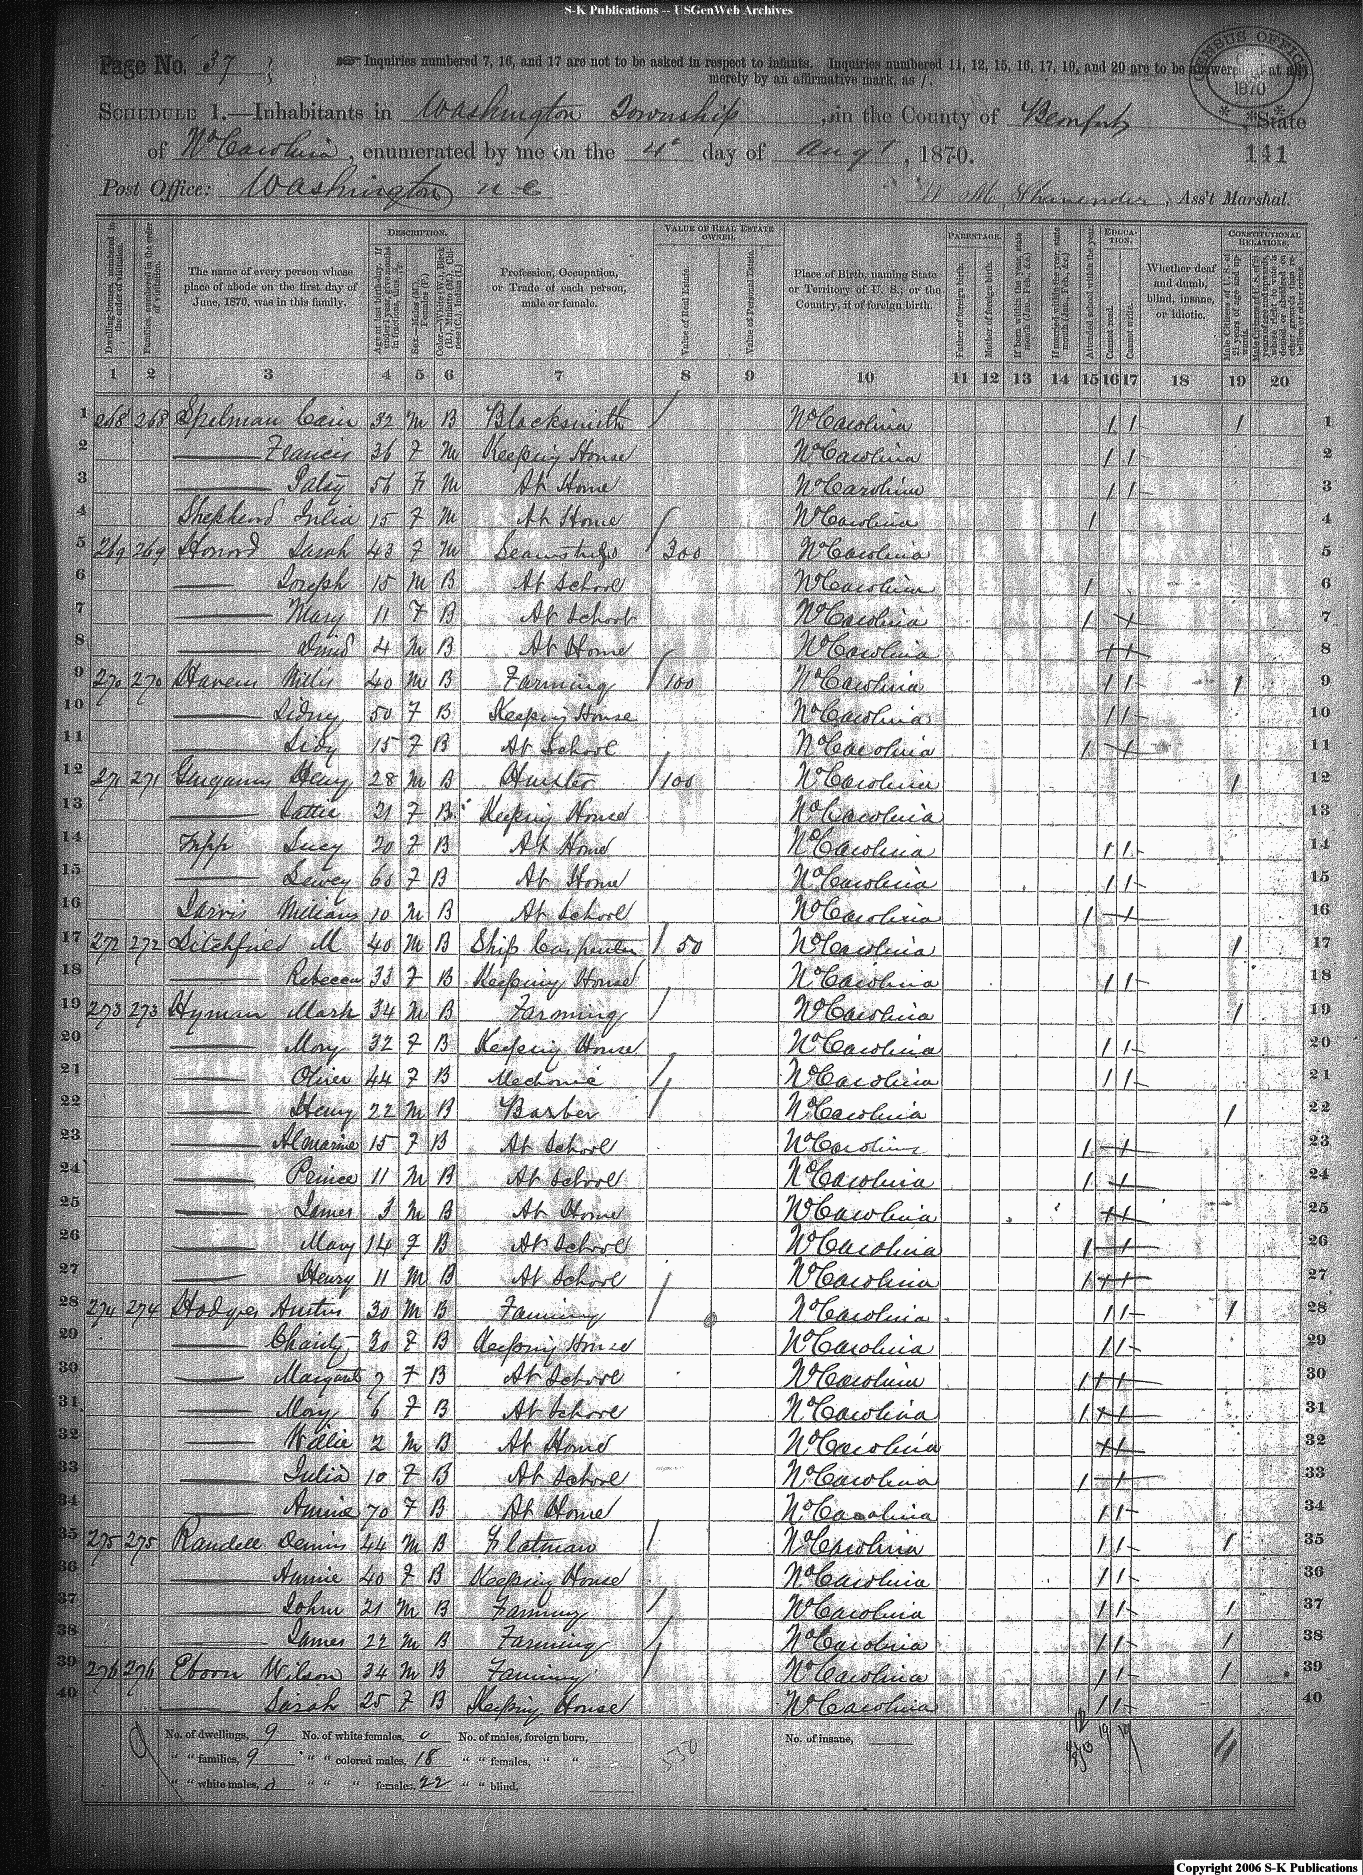 S-K Publications -- USGenWeb Archives
Page No. 37
Inquiries numbered 7, 16, and 17 are not to be asked in respect to infants. Inquiries numbered 11, 12, 15, 16, 17, 19, and 20 are to be answered
merely by an affirmative mark, as /.
SCHEDULE 1.—Inhabitants in Washington Township, in the County of Beaufort, State
of No Carolina, enumerated by me on the 4th day of Augt, 1870.
CENSUS OFFICE 1870
141
Post Office: Washington N C
Ass't Marshal.
Dwelling-houses, numbered in the order of visitation.
Families, numbered in the order of visitation.
The name of every person whose place of abode on the first day of June, 1870, was in this family.
DESCRIPTION.
Profession, Occupation, or Trade of each person, male or female.
VALUE OF REAL ESTATE OWNED.
Value of Real Estate.
Value of Personal Estate.
Place of Birth, naming State or Territory of U. S.; or the Country, if of foreign birth.
PARENTAGE.
Father of foreign birth.
Mother of foreign birth.
EDUCATION.
Attended school within the year.
Cannot read.
Cannot write.
Whether deaf and dumb, blind, insane, or idiotic.
CONSTITUTIONAL RELATIONS.
1 2 3 4 5 6 7 8 9 10 11 12 13 14 15 16 17 18 19 20
1 268 268 Spelman Cain 32 M B Blacksmith / No Carolina / / / 1
2 Francis 36 F M Keeping House No Carolina / / 2
3 Patsy 56 F M At Home No Carolina / / 3
4 Shepherd Julia 15 F M At Home No Carolina / 4
5 269 269 Sarah 43 F M Seamstress / 300 No Carolina 5
6 Joseph 15 M B At School No Carolina / 6
7 Mary 11 F B At School No Carolina / / 7
8 David 4 M B At Home No Carolina / / 8
9 270 270 Havens Willis 40 M B Farming / 100 No Carolina / / / 9
10 Sidney 50 F B Keeping House No Carolina / / 10
11 Lidy 15 F B At School No Carolina / / 11
12 271 271 Gurganus Henry 28 M B Huxter / 100 No Carolina / 12
13 Lattie 21 F B Keeping House No Carolina 13
14 Lucy 20 F B At Home No Carolina / / 14
15 60 F B At Home No Carolina / / 15
16 Jarvis William 10 M B At School No Carolina / / 16
17 272 272 Litchfield M 40 M B Ship Carpenter / 50 No Carolina / 17
18 Rebecca 33 F B Keeping House No Carolina / / 18
19 273 273 Hyman Mark 34 M B Farming / No Carolina / 19
20 Mary 32 F B Keeping House No Carolina / / 20
21 Oliver 44 F B Mechanic / No Carolina / / 21
22 Henry 22 M B Barber / No Carolina / 22
23 Almarine 15 F B At School No Carolina / / 23
24 Prince 11 M B At School No Carolina / / 24
25 James 3 M B At Home No Carolina / / 25
26 Mary 14 F B At School No Carolina / / 26
27 Henry 11 M B At School No Carolina / / / 27
28 274 274 Hodges Austin 30 M B Farming / No Carolina / / / 28
29 Charity 30 F B Keeping House No Carolina / / 29
30 Margaret 7 F B At School No Carolina / / / 30
31 Mary 6 F B At School No Carolina / / / 31
32 Willie 2 M B At Home No Carolina / / 32
33 Julia 10 F B At School No Carolina / / 33
34 Annie 70 F B At Home No Carolina / / 34
35 275 275 Randell Dennis 44 M B Flatman / No Carolina / / / 35
36 Annie 40 F B Keeping House No Carolina / / 36
37 John 21 M B Farming / No Carolina / / / 37
38 James 22 M B Farming / No Carolina / / / 38
39 276 276 Eborn Wilson 34 M B Farming / No Carolina / / / 39
40 Sarah 25 F B Keeping House No Carolina / / 40
No. of dwellings, 9 No. of white females, 0 No. of males, foreign born, No. of insane,
" " families, 9 " " colored males, 18 " " females, " " 550
" " white males, 0 " " " females, 22 " " blind,
Copyright 2006 S-K Publications